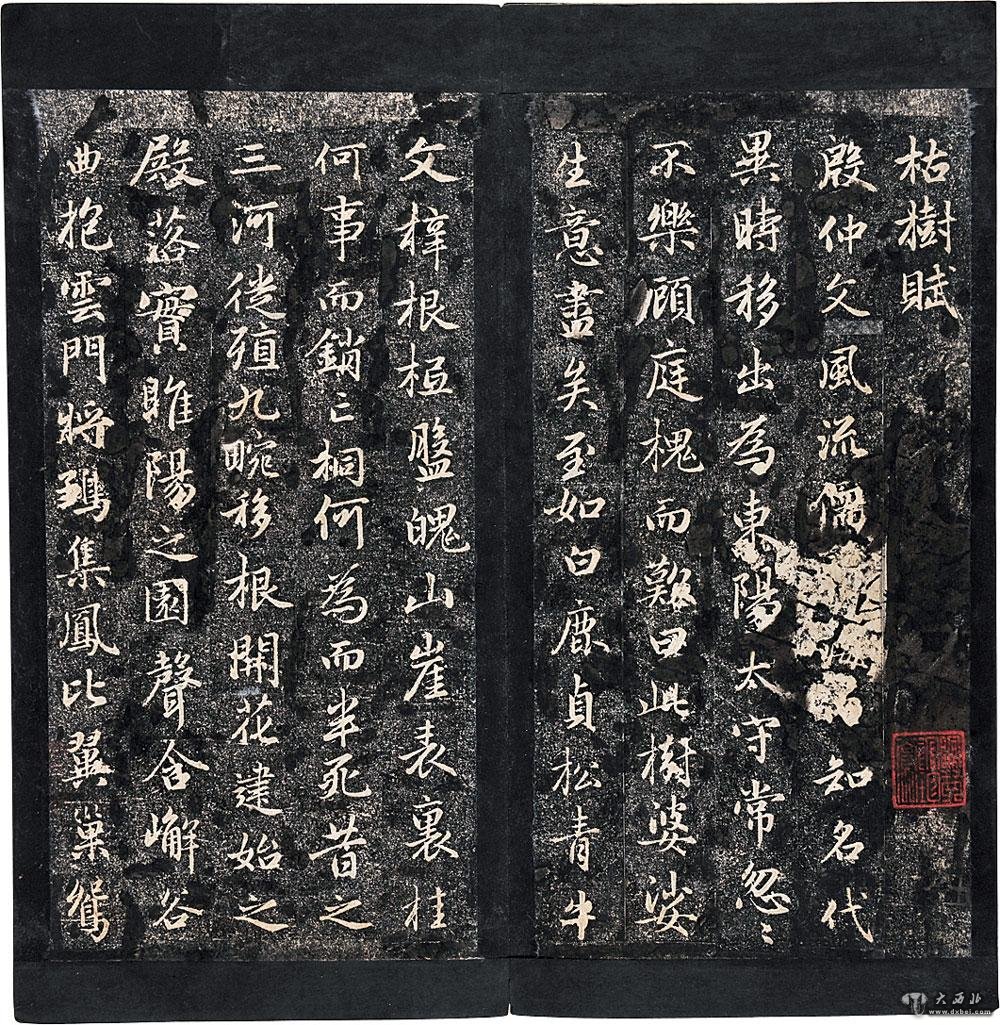 枯樹賦
殷仲文風流儒知名代
異時移出為東陽太守常忽〻
不樂顧庭槐而歎曰此樹婆娑
生意盡矣至如白鹿貞松青牛
文梓根柢盤魄山崖表裏桂
何事而銷亡桐何為而半死昔之
三河徙殖九畹移根開花建始之
殿落實睢陽之園聲含嶰谷
曲抱雲門將鶵集鳳比翼巢鴛
大西北
www.dxbei.com